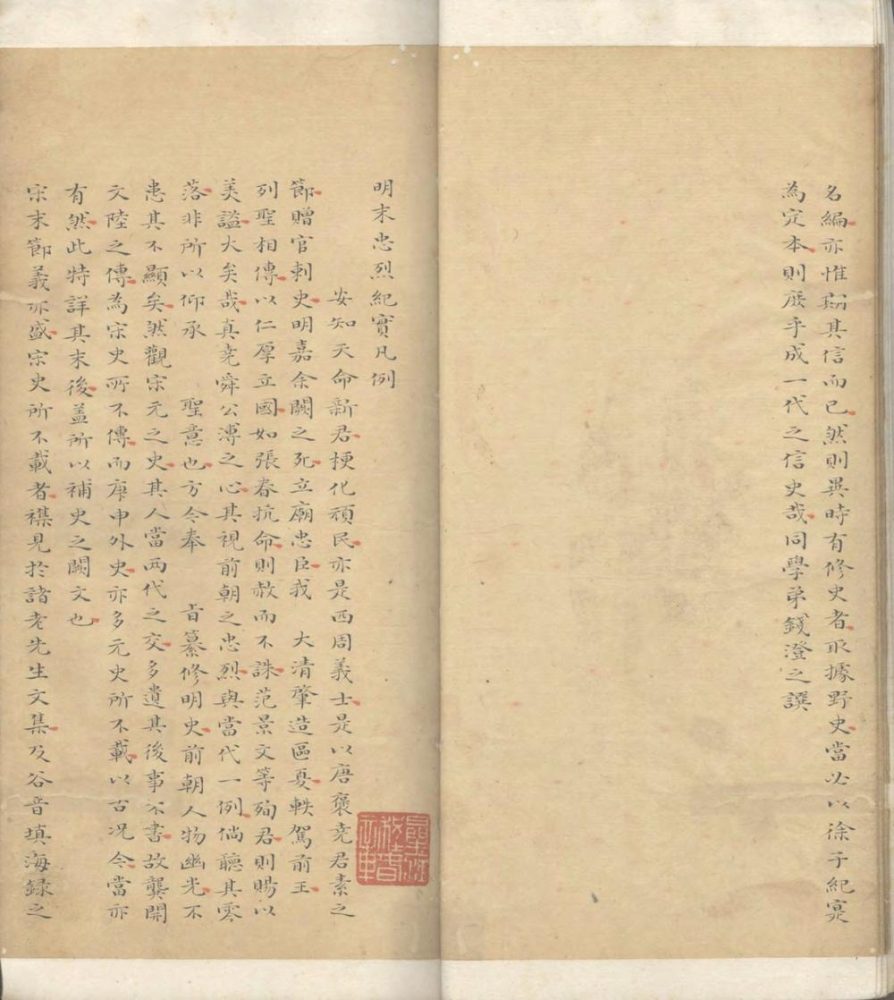 名編亦惟期其信而已然則異時有修史者取據野史當必以徐子紀寔
為定本則庶乎成一代之信史哉同學弟錢澄之譔
明末忠烈紀實凡例
安知天命新君梗化頑民亦是西周義士是以唐褒堯君素之
節贈官刺史明嘉余闕之死立廟忠臣我 大清肇造區夏軼駕前王
列聖相傳以仁厚立國如張春抗命則赦而不誅范景文等殉君則賜以
美謚大矣哉真堯舜公溥之心其視前朝之忠烈與當代一例倘聽其零
落非所以仰承 聖意也方今奉 旨纂修明史前朝人物幽光不
患其不顯矣然觀宋元之史其人當兩代之交多遺其後事不書故龔開
文陸之傳為宋史所不傳而庚申外史亦多元史所不載以古况今當亦
有然此特詳其末後蓋所以補史之闕文也
宋末節義亦盛宋史所不載者襍見於諸老先生文集及谷音填海録之